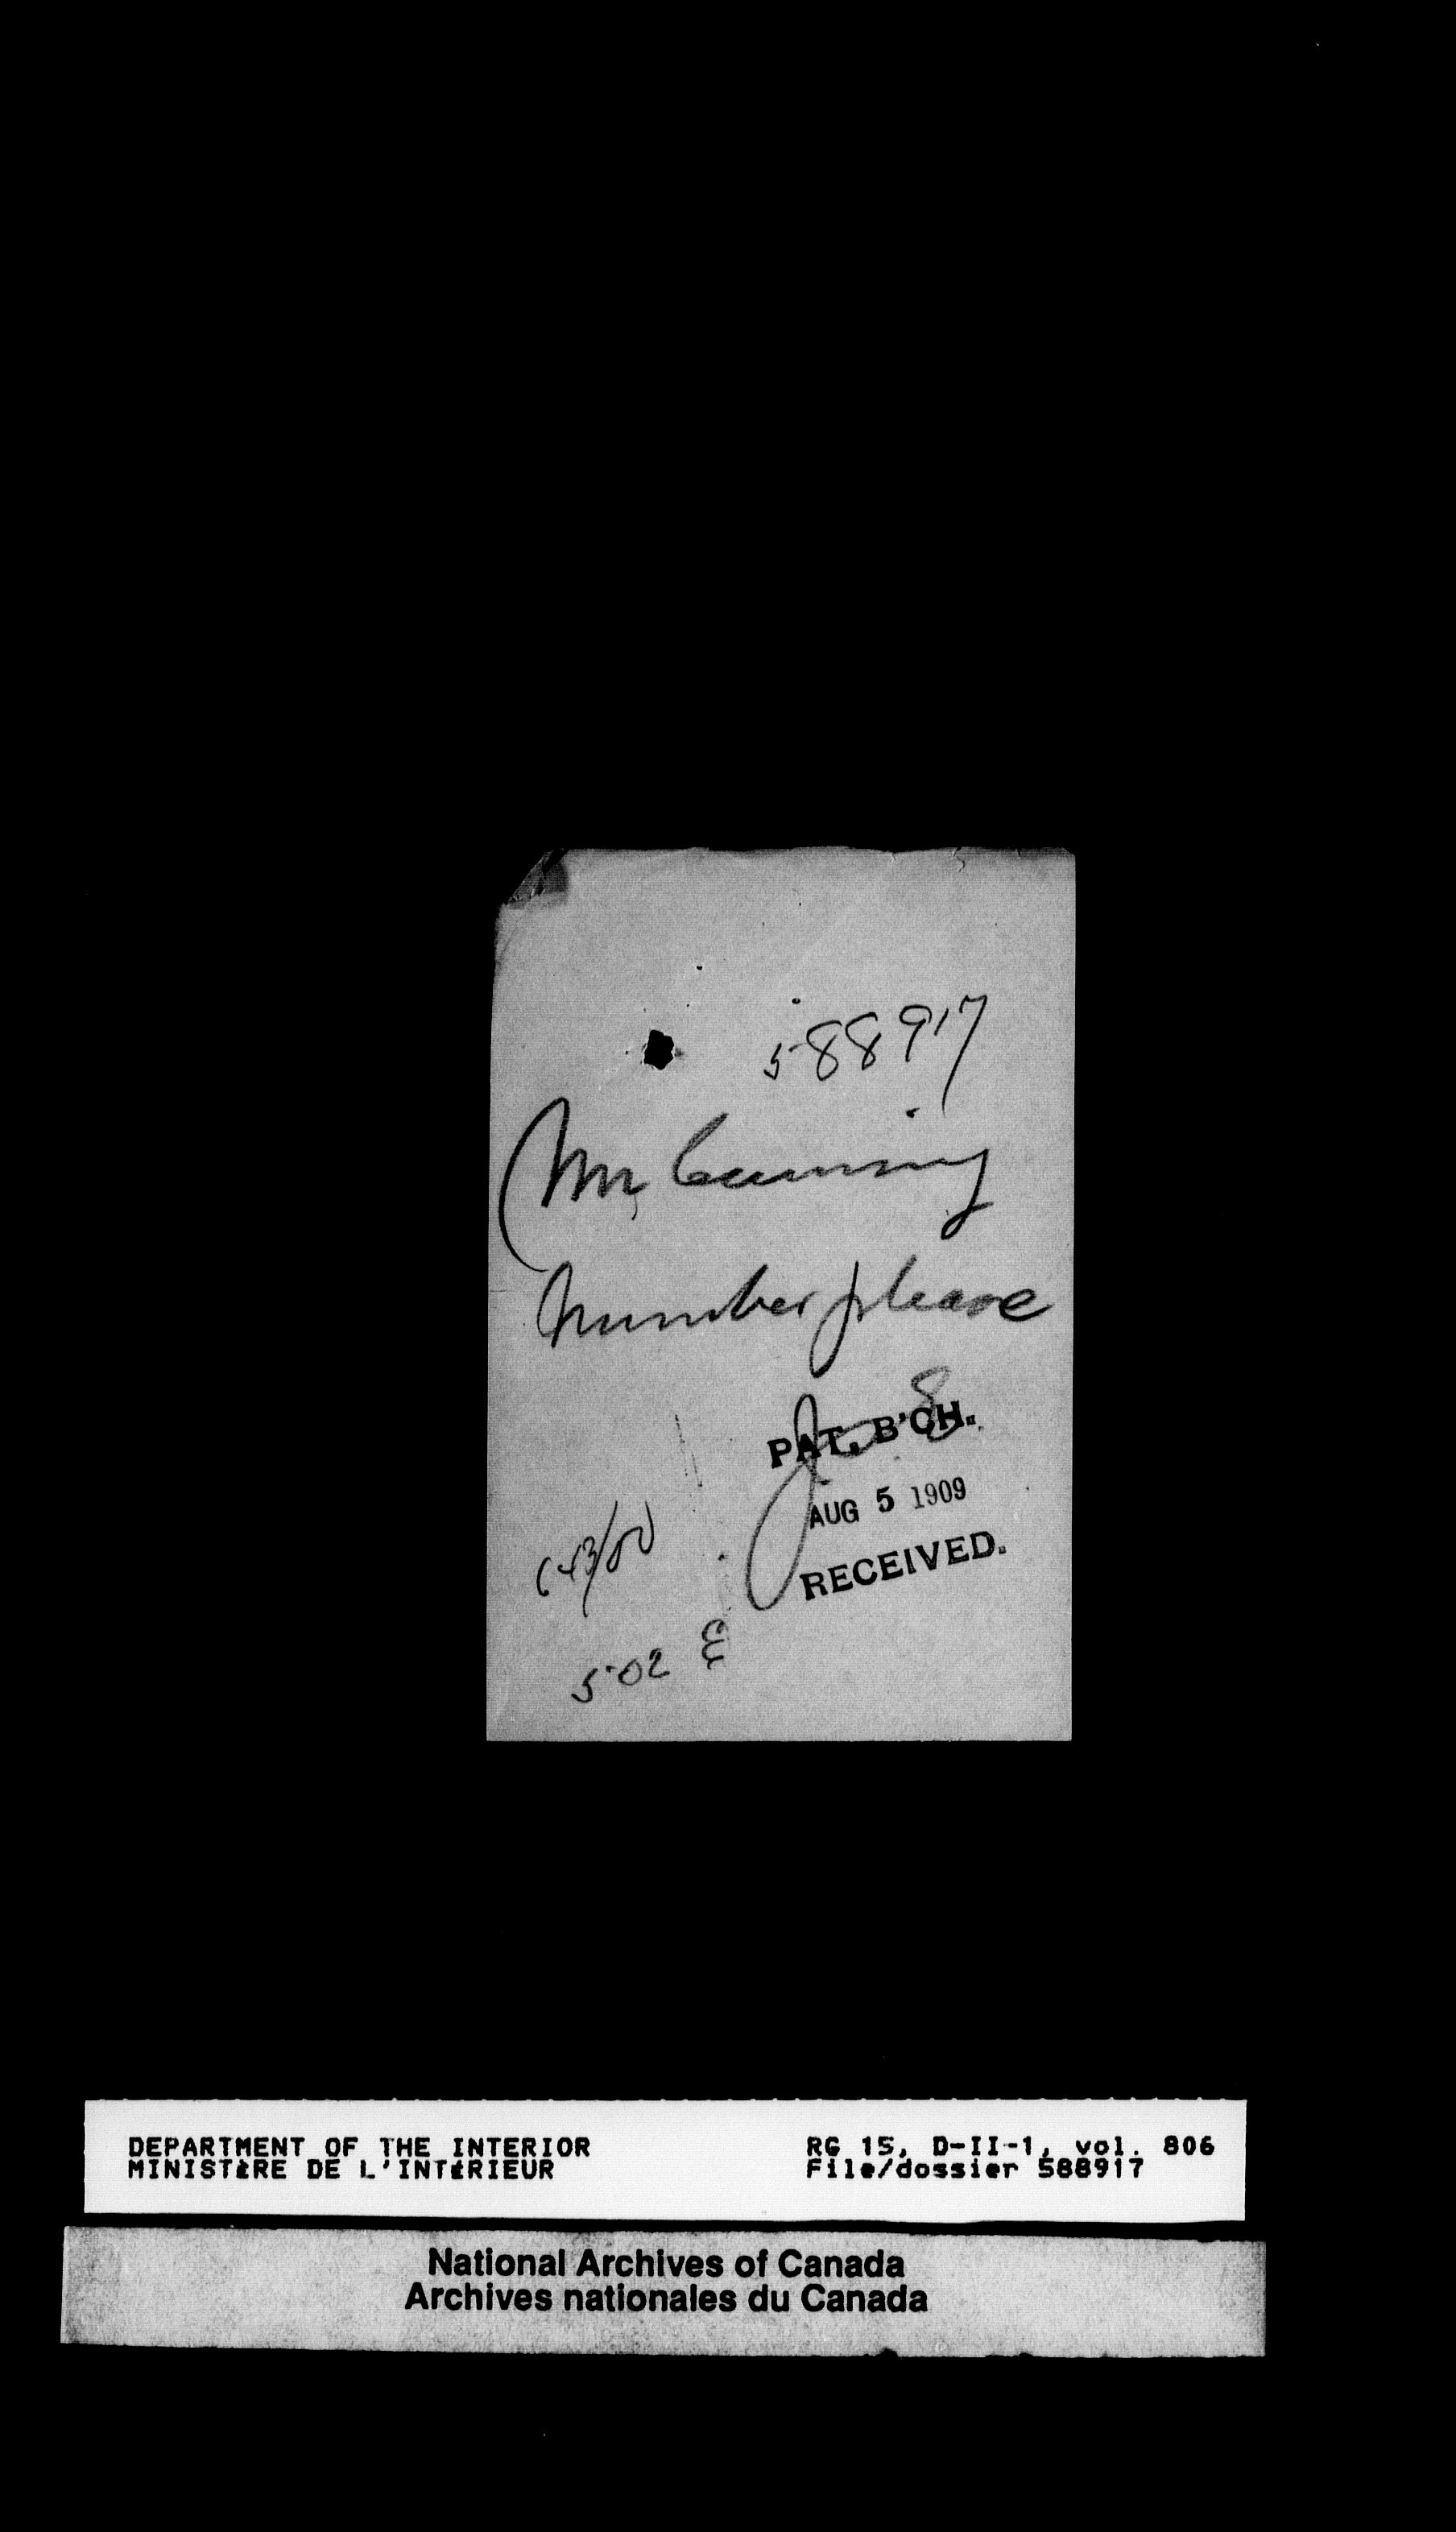 588917
Mr Cumming
Number please
PAT. B'CH.
AUG 5 1909
RECEIVED.
502 E
DEPARTMENT OF THE INTERIOR
MINISTÈRE DE L'INTÉRIEUR
RG 15, D-II-1, vol. 806
File/dossier 588917
National Archives of Canada
Archives nationales du Canada